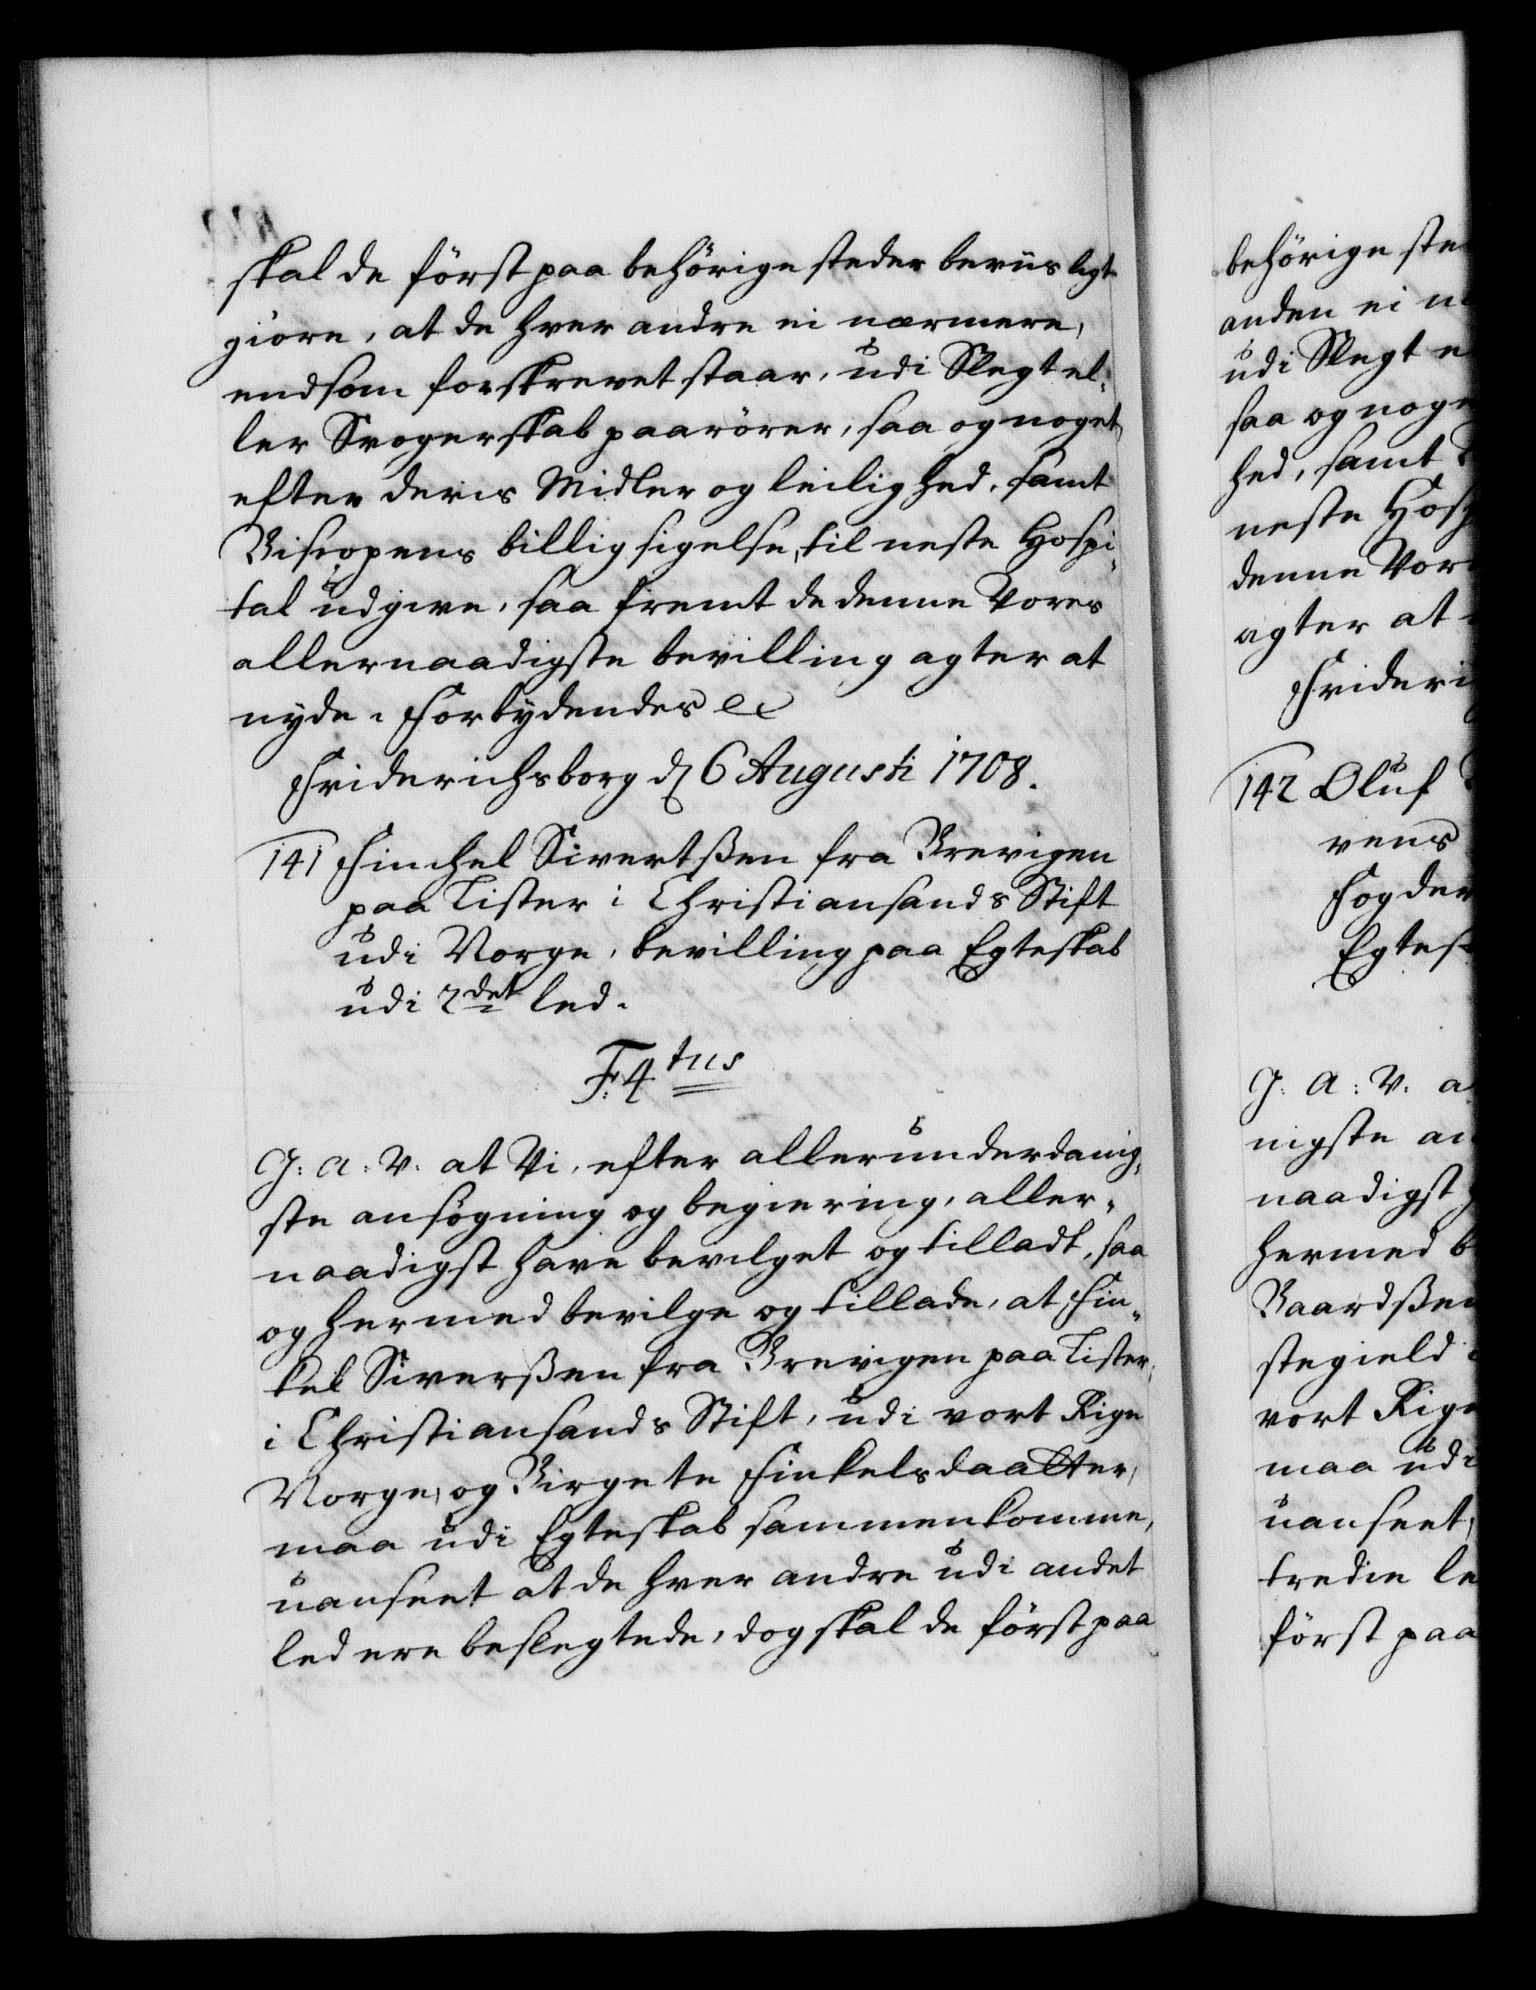 skal de först paa behörige steder beviisligt
giöre, at de hver andre ei nærmere,
end som forskrevet staar, udi Slegt el,
ler Svogerskab paarörer, saa og noget
efter deris Midler og leilighed, samt
Biscopens billigsigelse, til neste Hospi,
tal udgive, saa fremt de denne Vores
allernaadigste bevilling agter at
nyde. Forbydendes etc
Friderichsborg d 6 Augusti 1708.
141 Finchel Sivertßen fra Brevigen
paa Lister i Christiansands Stift
udi Norge, bevilling paa Egteskab
udi 2det led.
F: 4tus
G: A: V: at Vi, efter allerunderdanig,
ste ansögning og begiering, aller,,
naadigst have bevilget og tilladt, saa
og hermed bevilge og tillade, at Fin,,
kel Siverßen fra Brevigen paa Lister,
i Christiansands Stift, udi vort Rige
Norge, og Birgete Finkelsdaatter,
maa udi Egteskab sammenkomme,
uanseet at de hver andre udi andet
led ere beslegtede, dog skal de först paa
behörige ste
anden ei n
udi Slegt e
saa og noge
hed, samt
neste Hosp
denne Vor
agter at
Frideri
142 Oluf
vens
Fogder
Egtes
G: A: V: a
nigste an
naadigst
hermed b
Baardßen
stegield
vort Rige
maa udi
uanseet,
tredie le
först paa